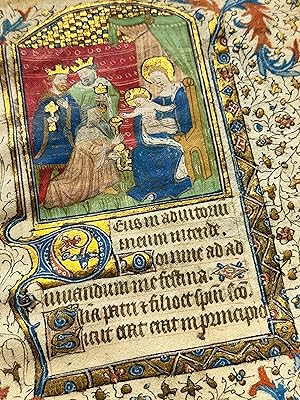 Deus in adiutoriu
meum intende.
Domine ad ad
iuuandum me festina.
Glia patri et filio et spiri sco.
Sicut erat erat in principio